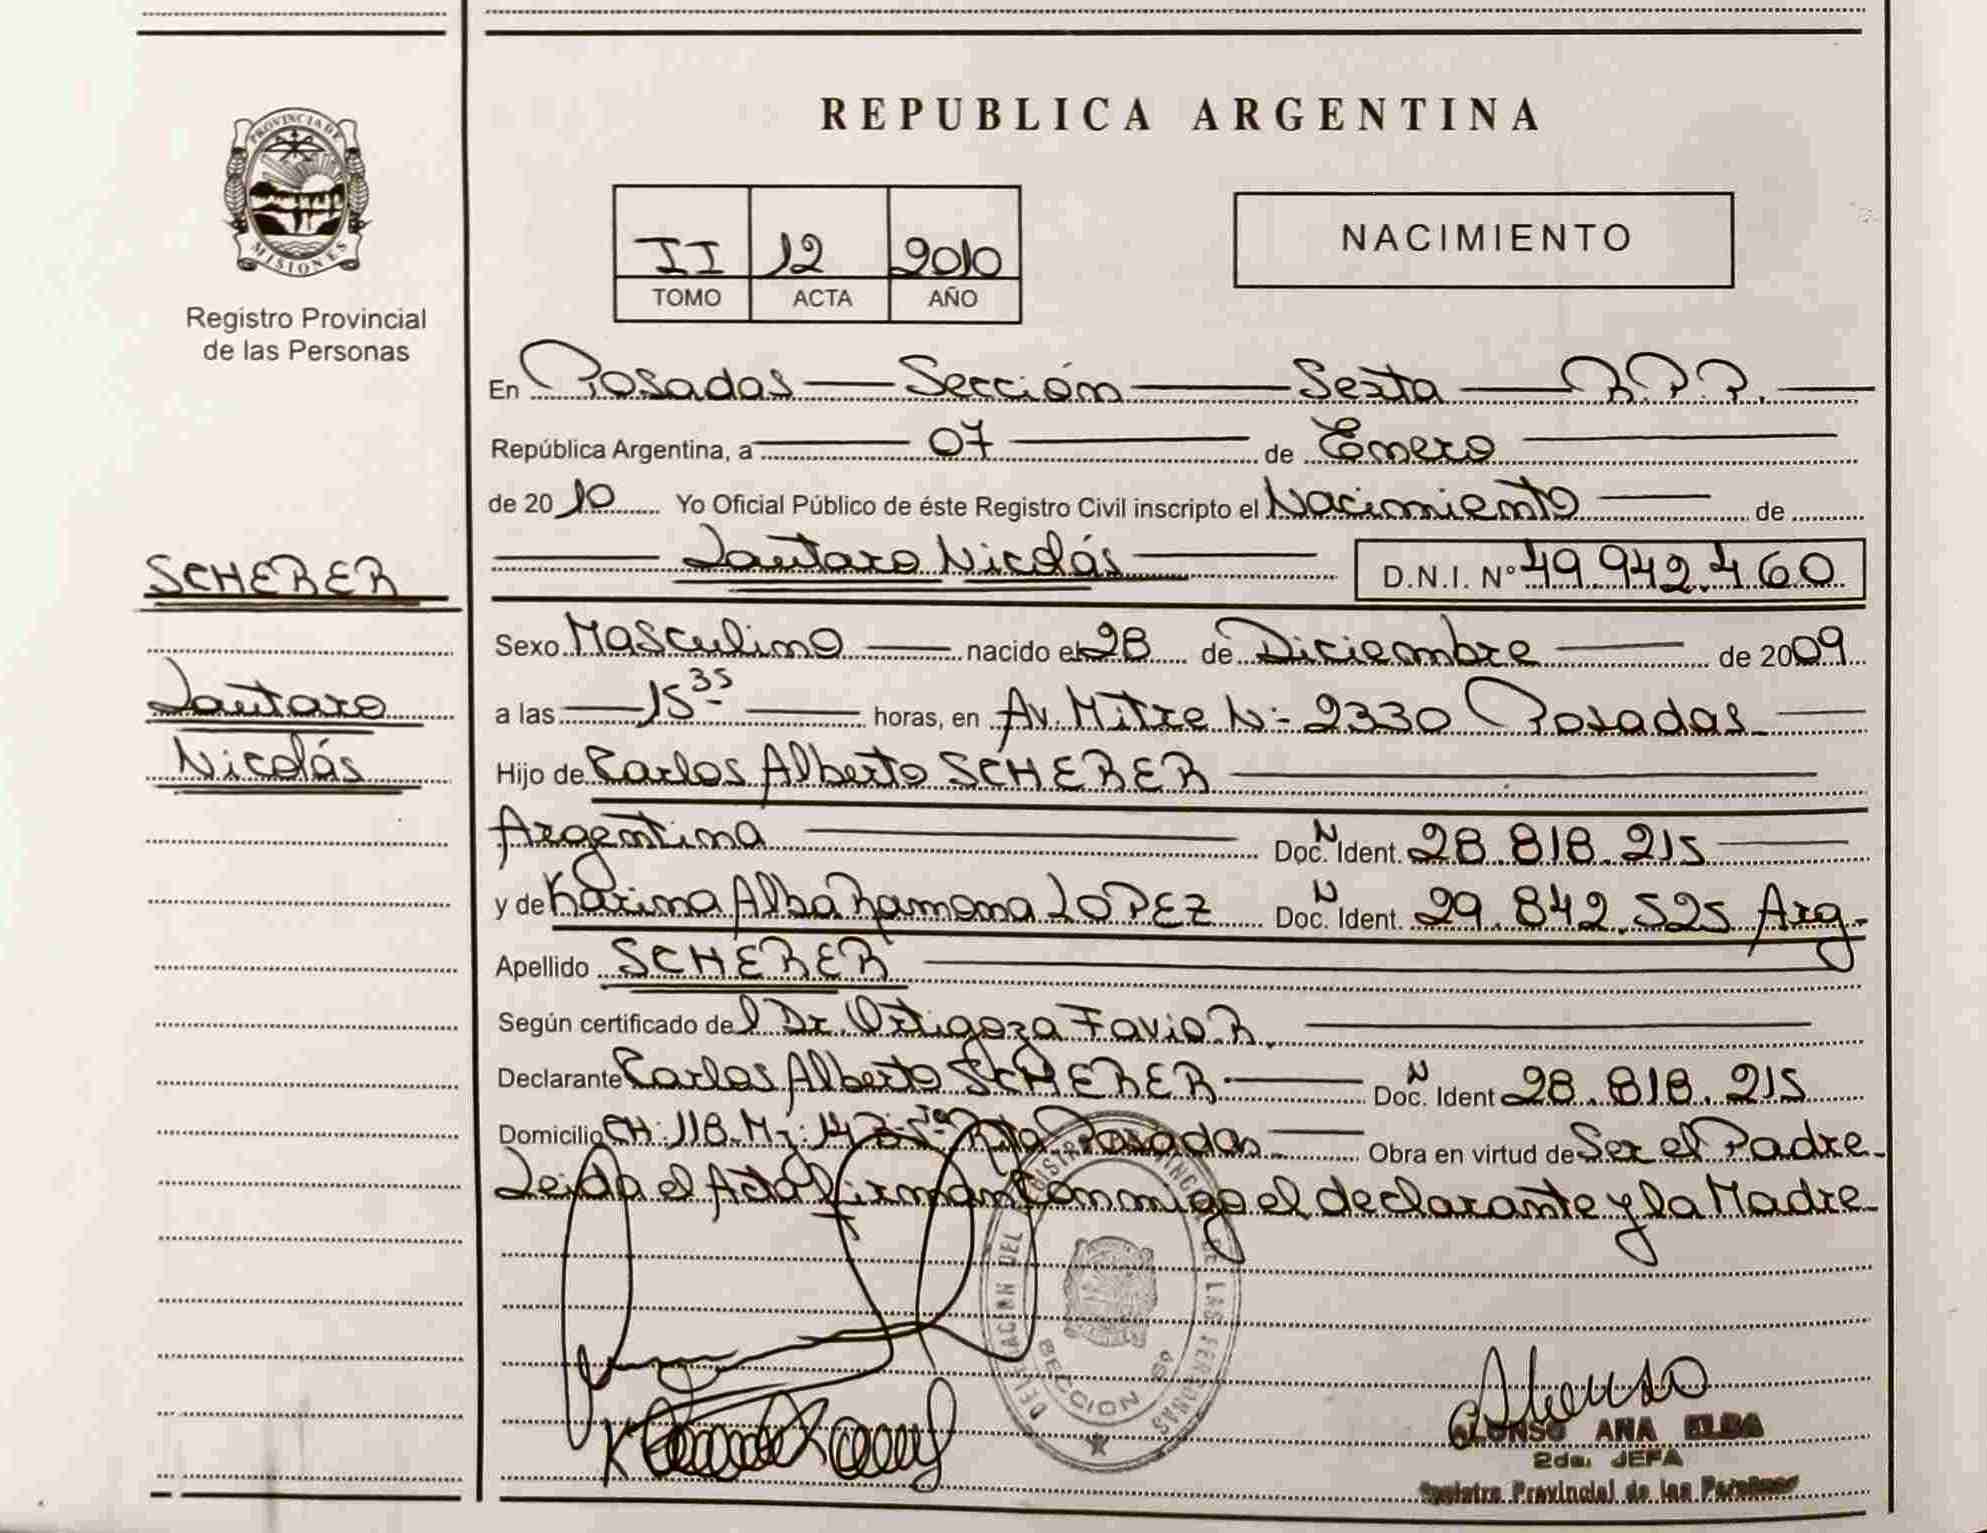 PROVINCIA DE
MISIONES
Registro Provincial
de las Personas
SCHERER
Lautaro
Nicolás
REPUBLICA ARGENTINA
II 12 2010
TOMO ACTA AÑO
NACIMIENTO
En Posadas Sección Sexta R.P.P.
República Argentina, a 07 de Enero
de 2010 Yo Oficial Público de éste Registro Civil inscripto el Nacimiento de
Lautaro Nicolás D.N.I. N° 49.942.460
Sexo Masculino nacido el 28 de Diciembre de 2009
a las 15 35 horas, en Av. Mitre N: 2330 Posadas
Hijo de Carlos Alberto SCHERER
Argentina Doc. N Ident. 28.818.215
y de Karina Alba Ramona LOPEZ Doc. N Ident. 29.842.525 Arg.
Apellido SCHERER
Según certificado del Dr. Ortigoza Favio R.
Declarante Carlos Alberto SCHERER Doc. N Ident 28.818.215
Domicilio CH: 118. Mz: 147 Sta Rita Posadas Obra en virtud de Ser el Padre
Leída el Acta firman conmigo el declarante y la Madre
DELEGACION DEL REGISTRO PROVINCIAL DE LAS PERSONAS
SECCION 6º
Alonso
ALONSO ANA ELBA
2da. JEFA
Registro Provincial de las Personas